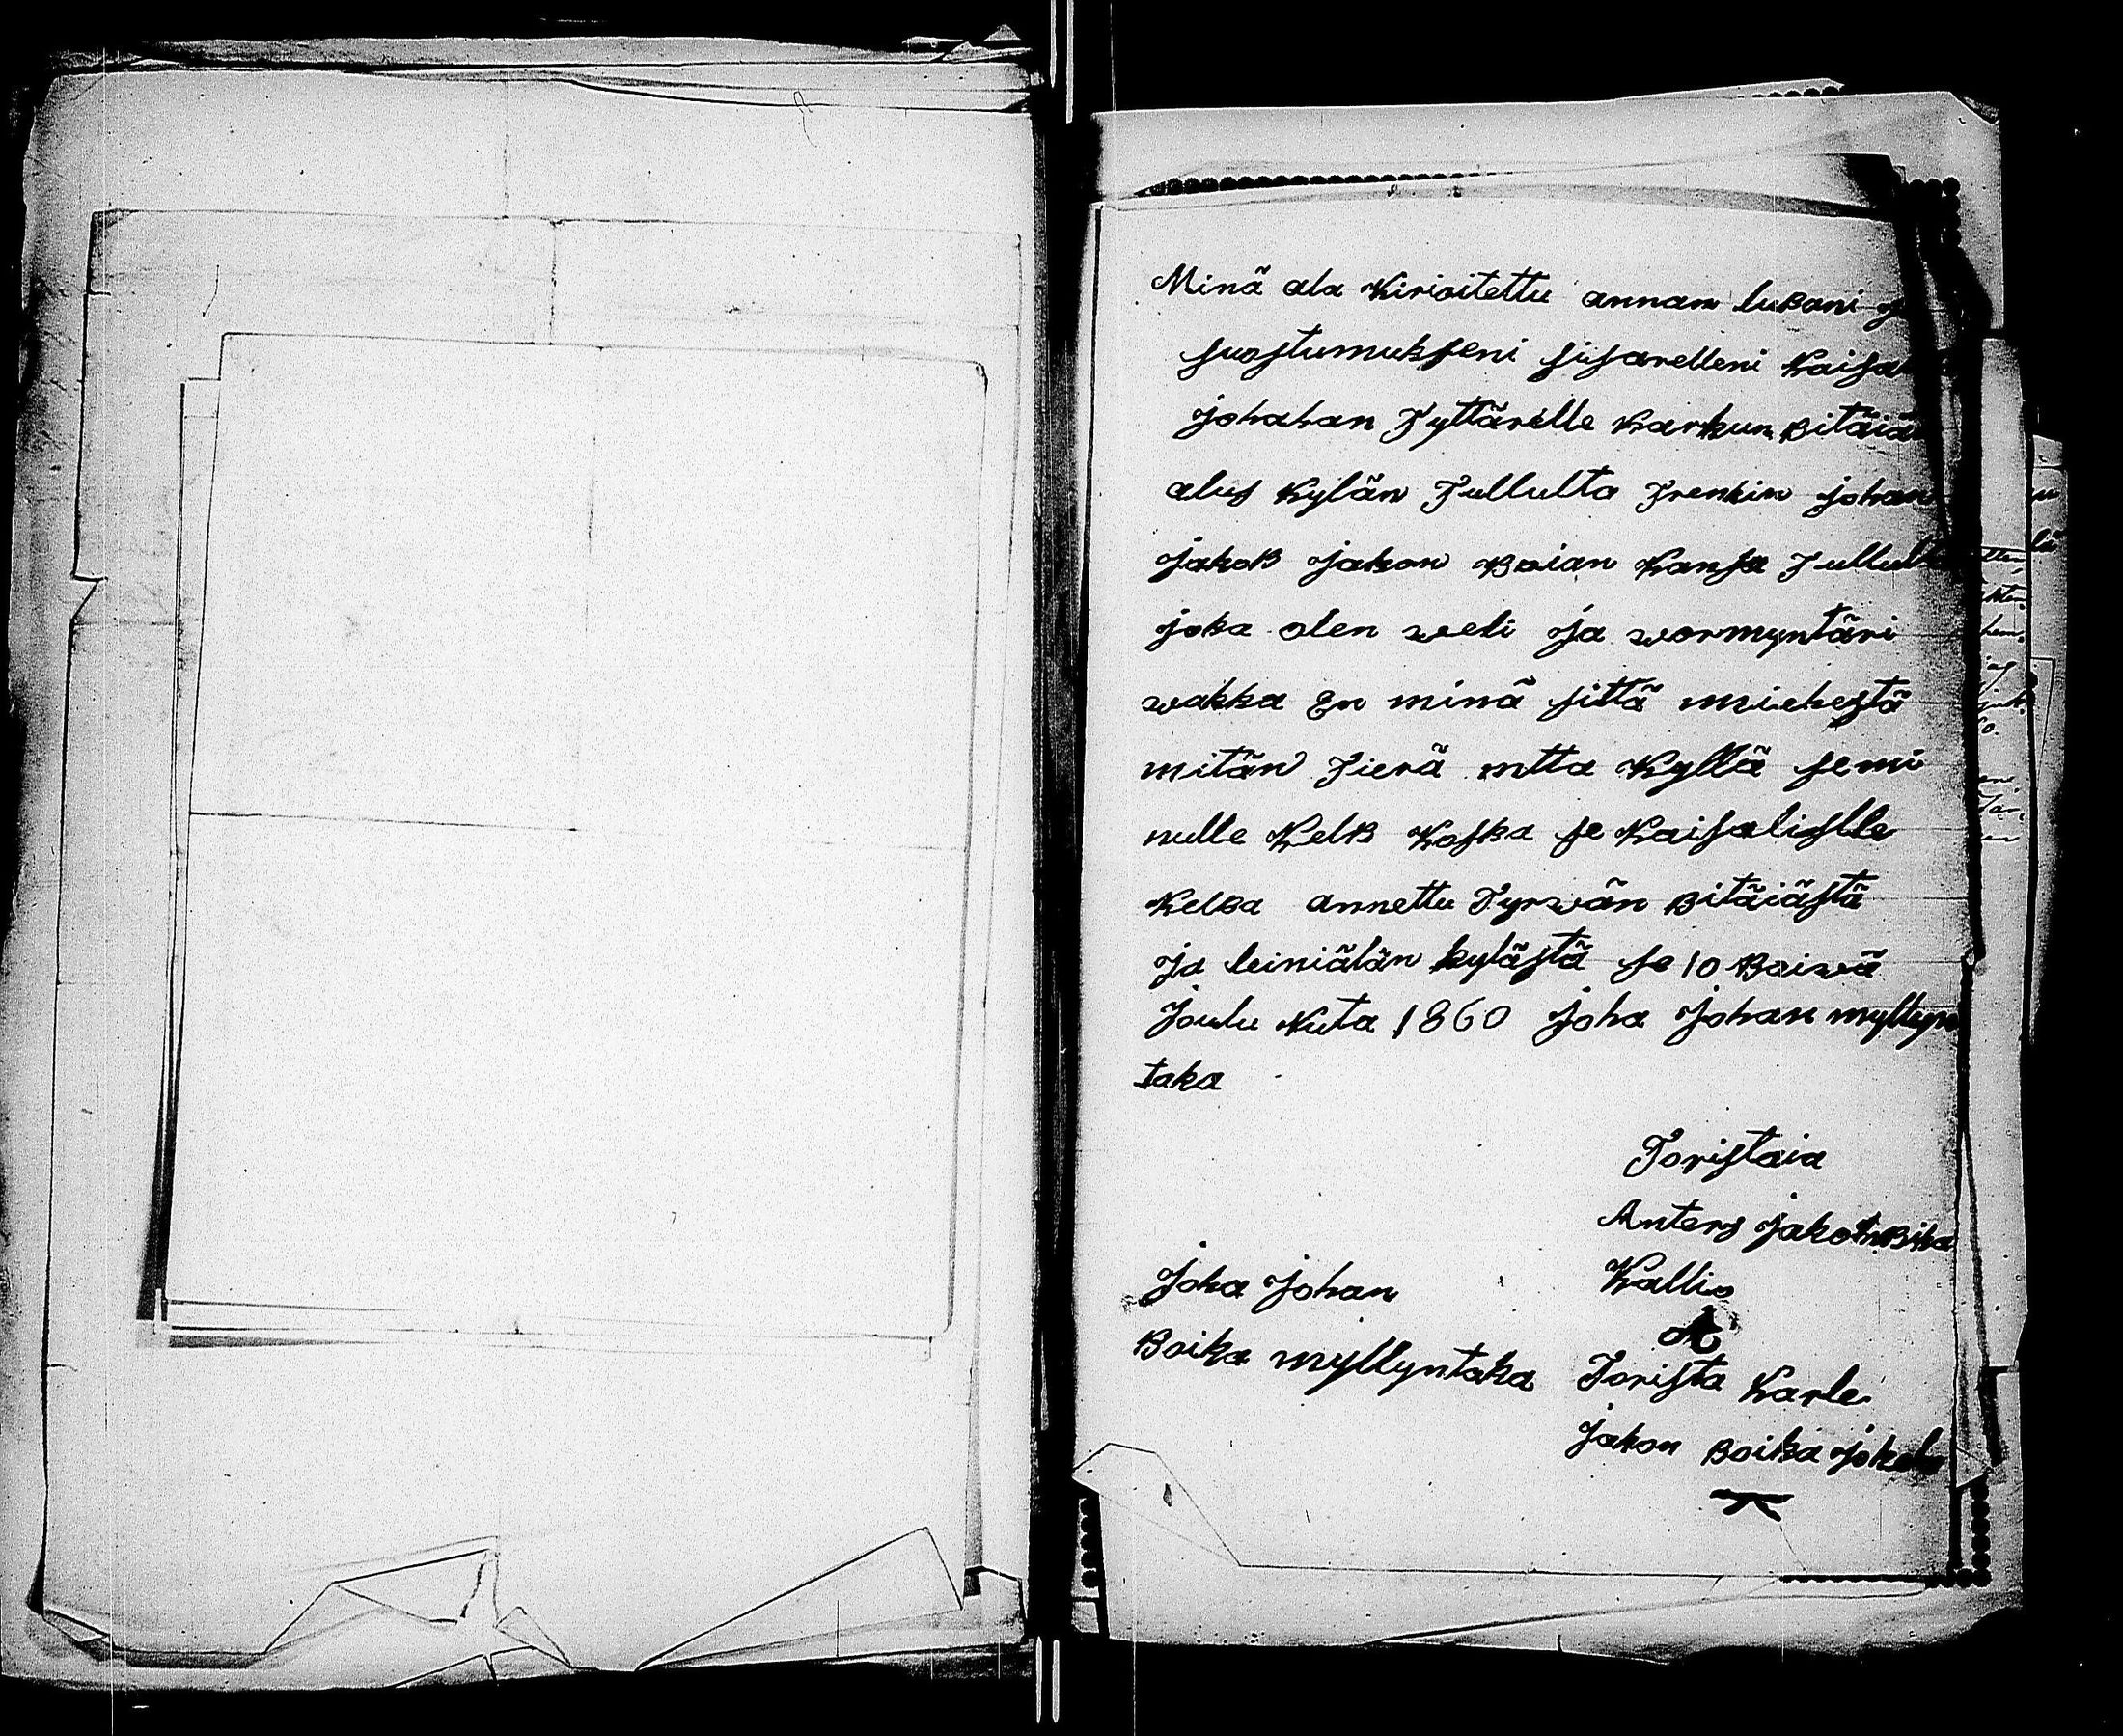 Minä ala Kirioitettu annam luBani
suostumukseni sisarelleni Kaisa
johahan Tyttärelle Karkun Bitäiän
alus Kylän Tullulta Trenkin johan
jakoB jakon Boian Kansa Tullulta
joka olen weli ja wormyntäri
wakka En minä sittä miehestä
mitän Tierä mtta Kyllä se mi
nulle KelB Koska se Kaisalislle
KelBa annettu Tyrwän Bitäiästä
ja leiniälän kylästä se 10 Baiwä
Joulu Kuta 1860 Joha Johan myllyn
taka
Toristaia
Anters jakon Bika
Kallio
Joha Johan
Boika myllyntaka
Torista Karle
jakon Boika jokela